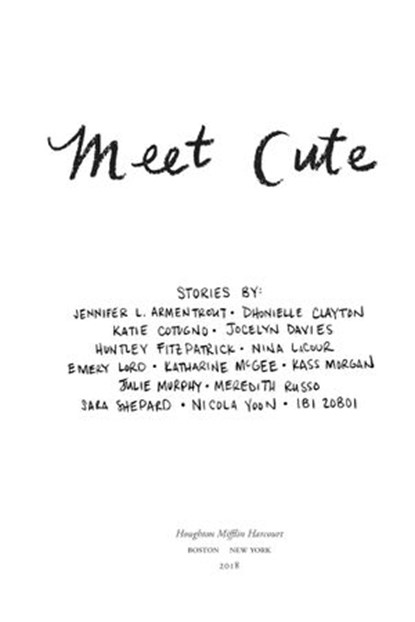 Meet Cute
STORIES BY:
JENNIFER L. ARMENTROUT • DHONIELLE CLAYTON
KATIE COTUGNO • JOCELYN DAVIES
HUNTLEY FITZPATRICK • NINA LACOUR
EMERY LORD • KATHARINE McGEE • KASS MORGAN
JULIE MURPHY • MEREDITH RUSSO
SARA SHEPARD • NICOLA YOON • IBI ZOBOI
Houghton Mifflin Harcourt
BOSTON NEW YORK
2018